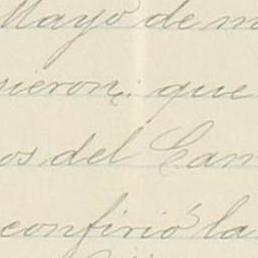 Mayo de m
sieron: que
os del Can
confirió la